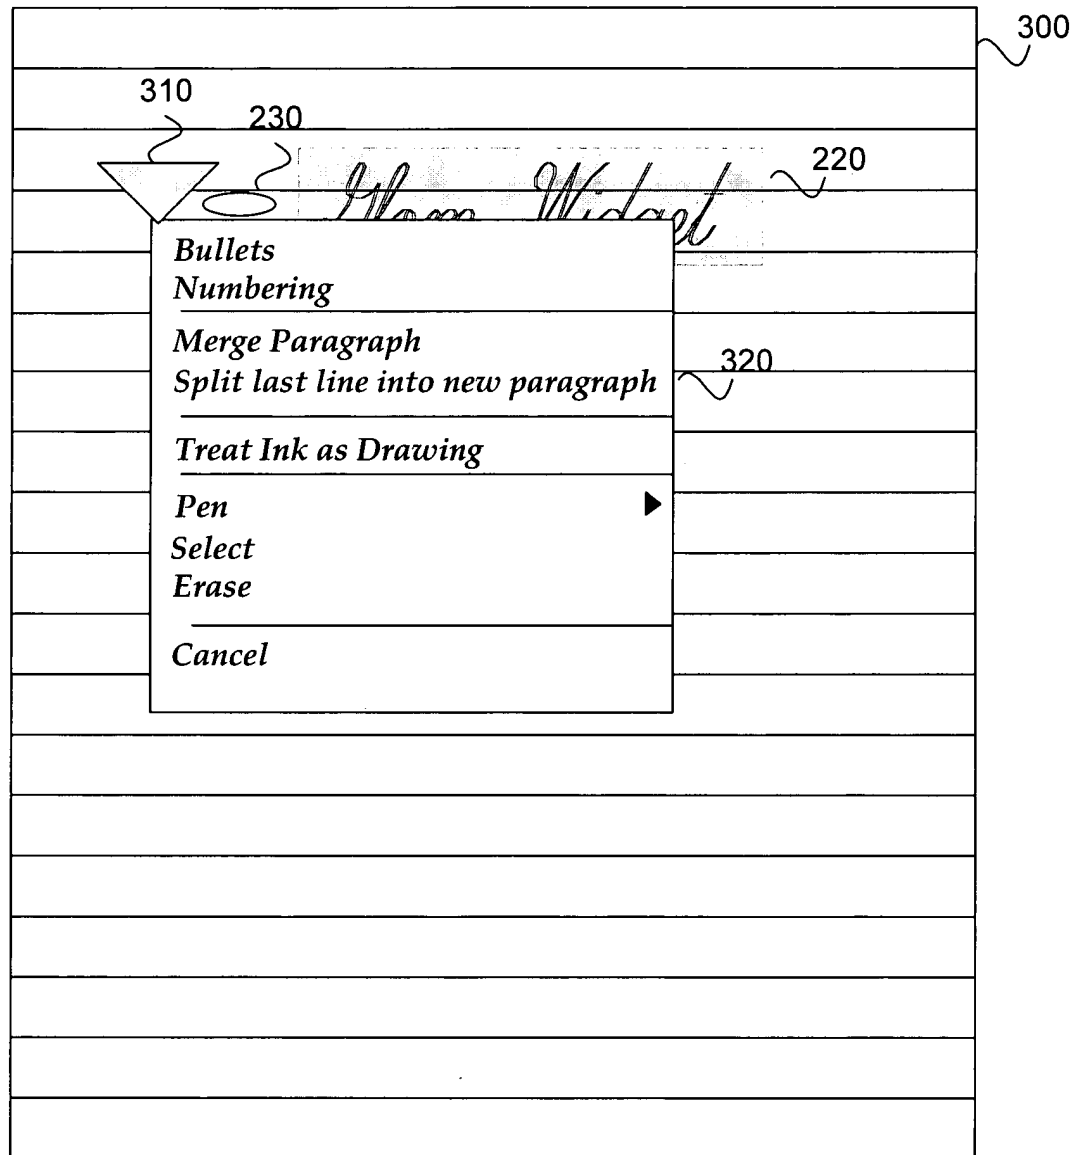 300
310
230
220
Glom Widget
Bullets
Numbering
Merge Paragraph
Split last line into new paragraph
320
Treat Ink as Drawing
Pen
Select
Erase
Cancel